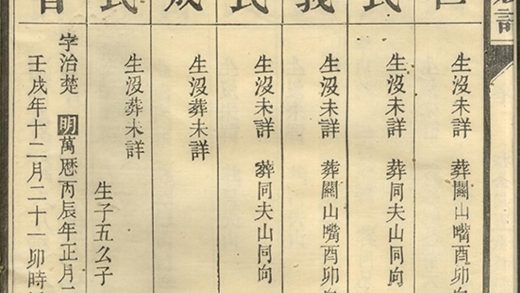 生沒未詳 葬關山嘴酉卯向
生沒未詳 葬同夫山同向
氏
生沒未詳 葬關山嘴酉卯向
義
生沒未詳 葬同夫山同向
氏
生沒葬未詳
成
生沒葬未詳 生子五幺子
氏
字治楚 明萬曆丙辰年正月
壬戌年十二月二十一卯時